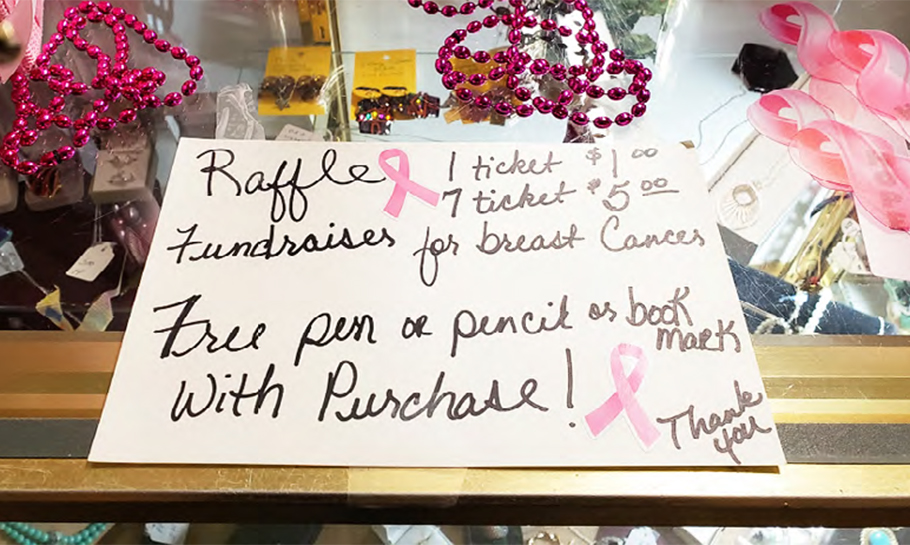 Raffle 1 ticket $1.00
7 ticket $5.00
Fundraiser for breast Cancer
Free pen or pencil or book mark
With Purchase!
Thank you